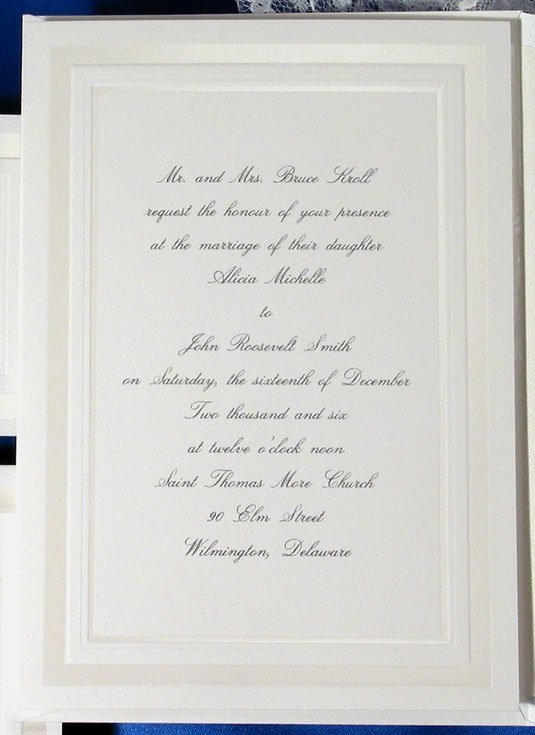 Mr. and Mrs. Bruce Kroll
request the honour of your presence
at the marriage of their daughter
Alicia Michelle
to
John Roosevelt Smith
on Saturday, the sixteenth of December
Two thousand and six
at twelve o'clock noon
Saint Thomas More Church
90 Elm Street
Wilmington, Delaware